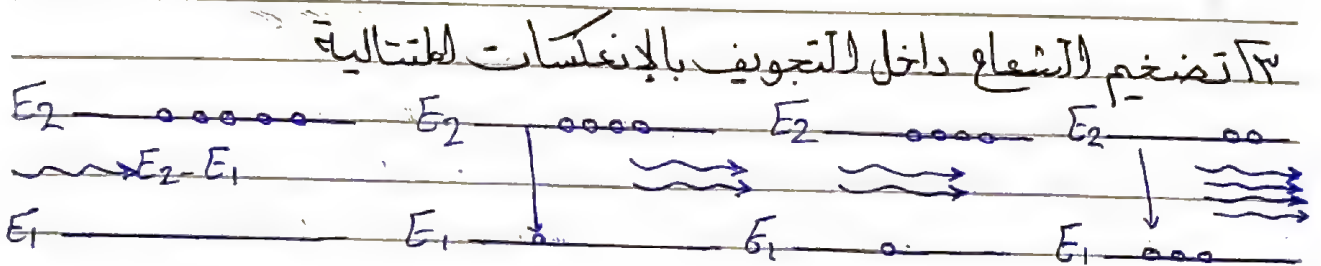 ٣] تضخيم الشعاع داخل التجويف بالإنعكسات المتتالية
E2 E2 E2 E2
E2-E1
E1 E1 E1 E1